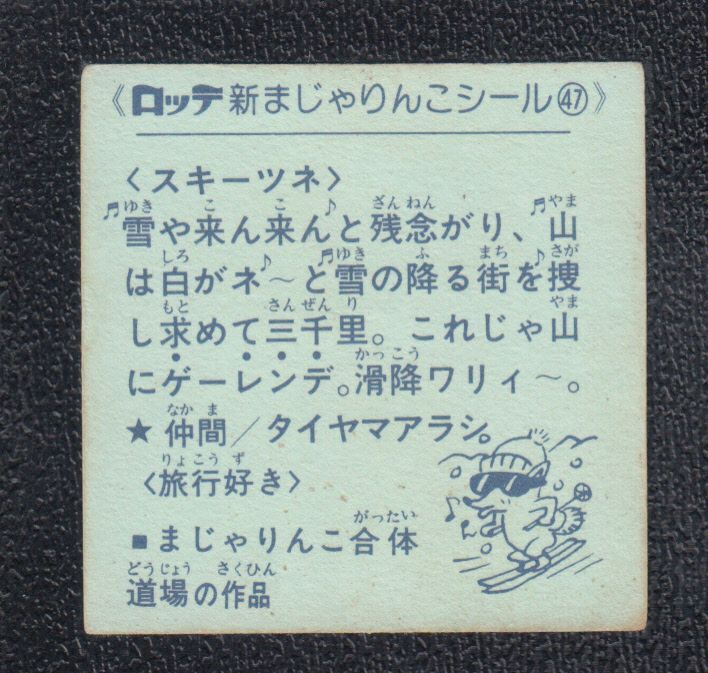 《ロッテ新まじゃりんこシール㊼》
〈スキーツネ〉
♬雪や来ん来ん♪と残念がり、♬山
は白がネ♪～と♬雪の降る街を♪捜
し求めて三千里。これじゃ山
にゲーレンデ。滑降ワリィ～。
★仲間／タイヤマアラシ。
〈旅行好き〉
■まじゃりんこ合体
道場の作品